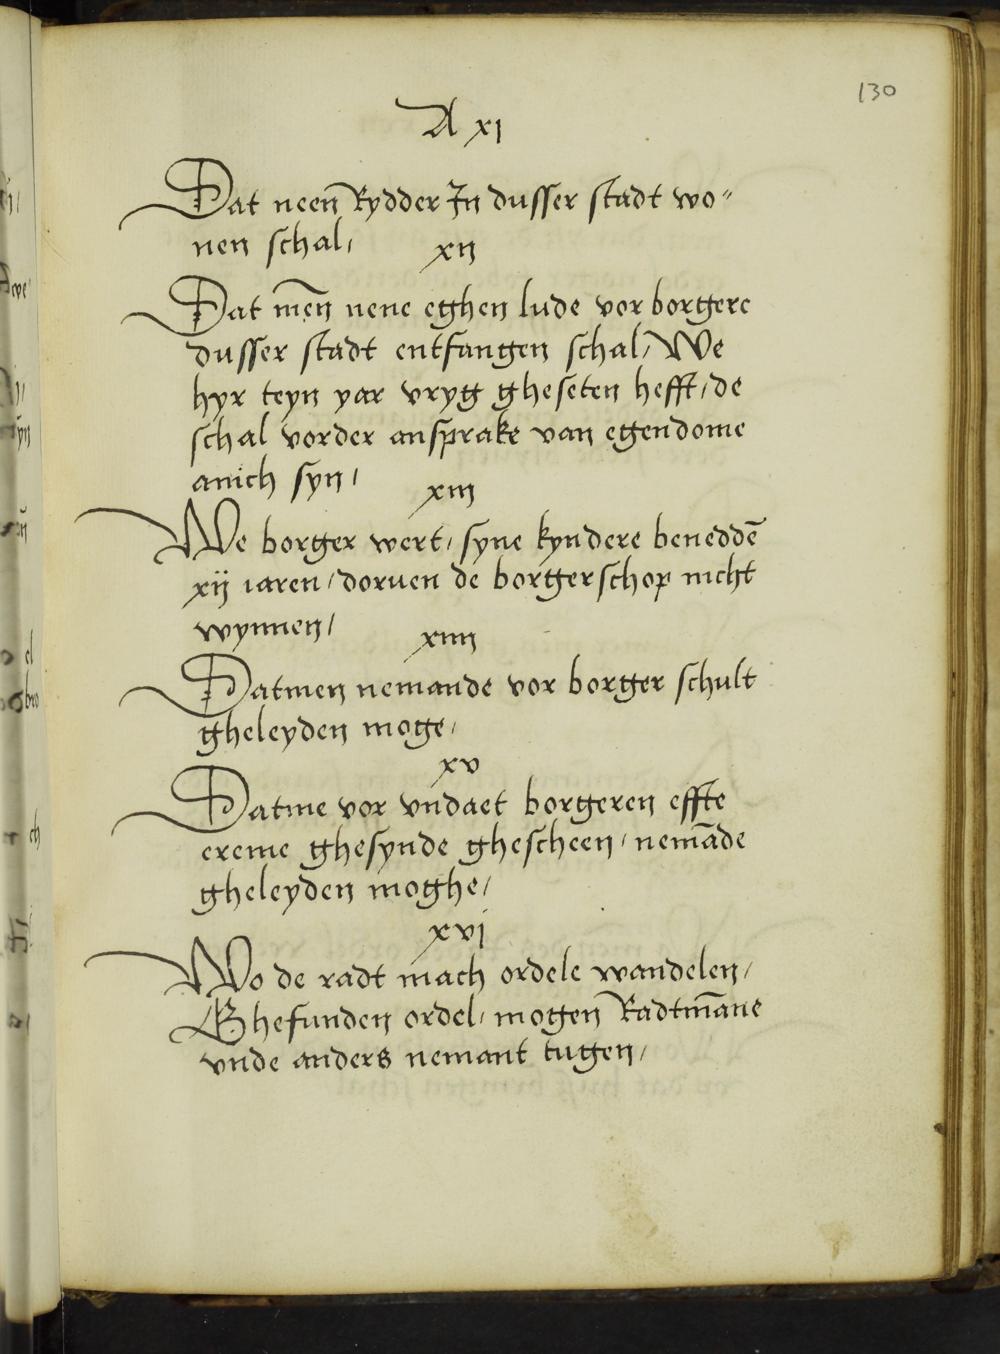 130
A xj
Dat neen̄ Rydder In dusser stadt wo"
nen schal,
xij
Dat mēn nene eghen lude vor borgere
dusser stadt entfangen schal, We
hyr teyn yar vryg gheseten hefft, de
schal vorder ansprake van egendome
anich syn,
xiij
We borger wert, syne kyndere beneddē
xij iaren, doruen de borgerschop nicht
wynnen,
xiiij
Datmen nemande vor borger schult
gheleyden moge,
xv
Datme vor vndaet borgeren effte
ereme ghesynde ghescheen, nemāde
gheleyden moghe,
xvj
Wo de radt mach ordele wandelen,
Ghefunden ordel, mogen Radtm̄ane
vnde anders nemant tugen,